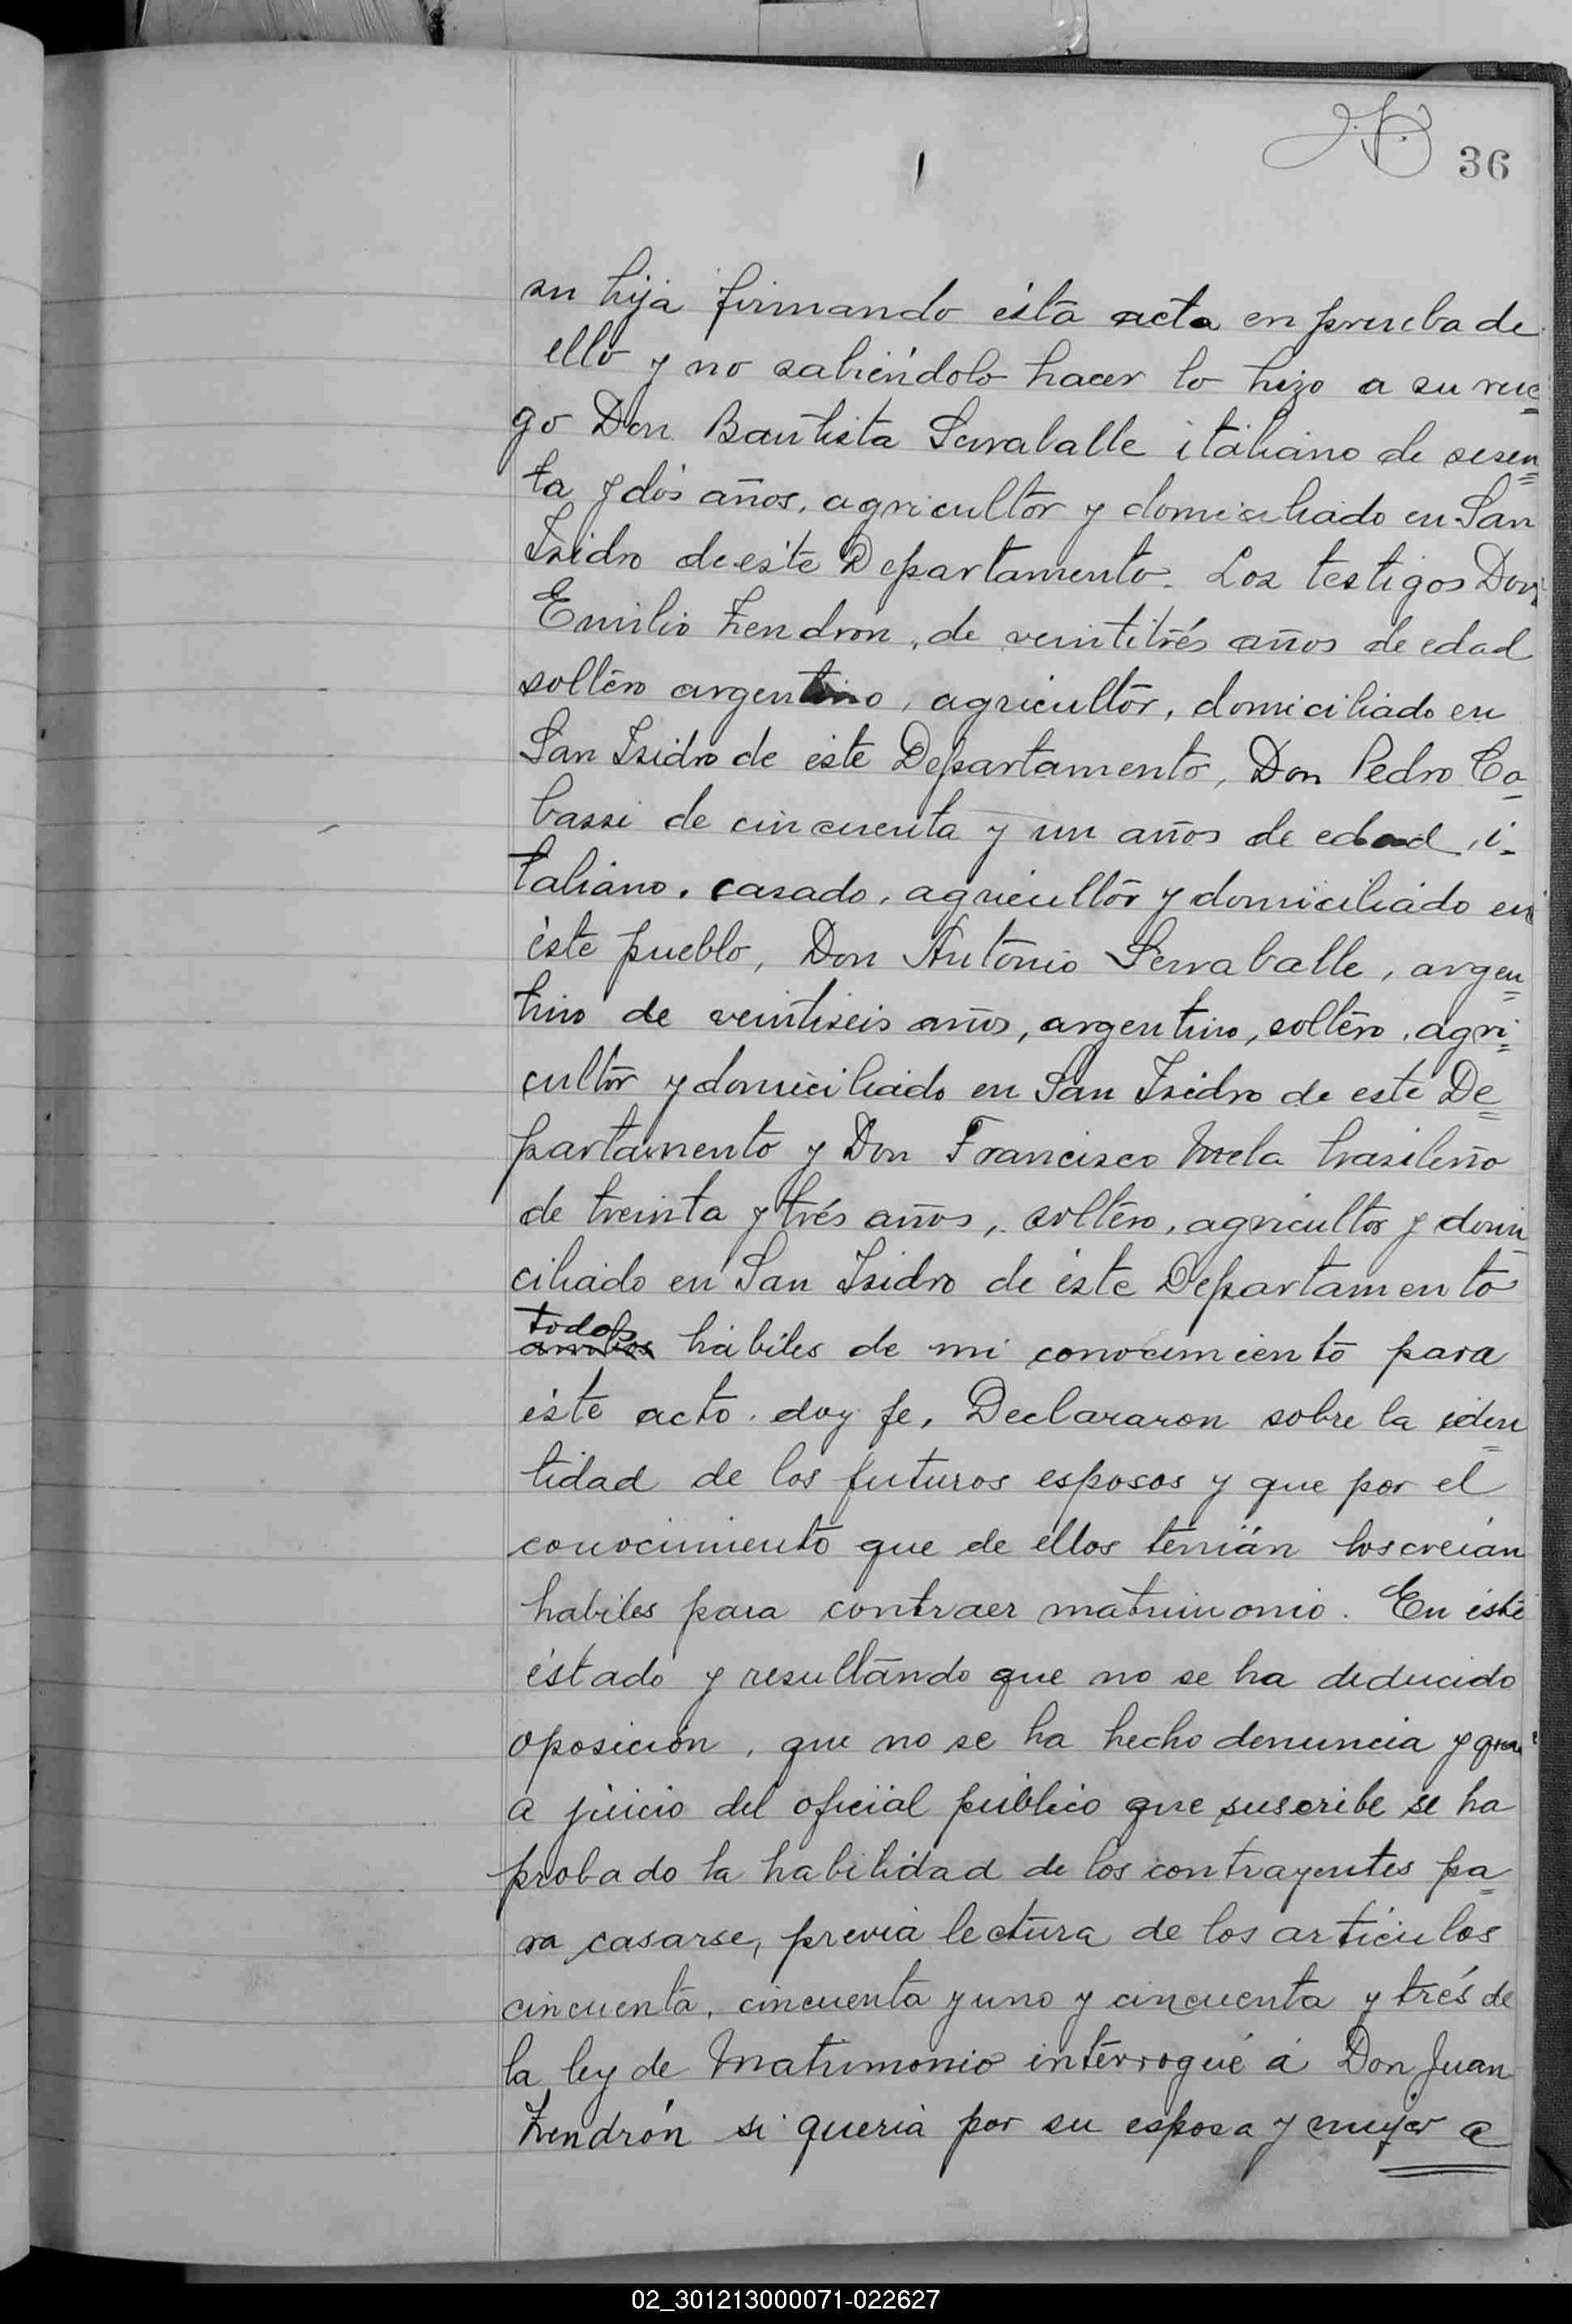 36
su hija firmando ésta acta en prueba de
ello y no sabiéndolo hacer lo hizo a su rue
go Don Bautista Serraballe italiano de sesen
ta y dós años, agricultor y domiciliado en San
Isidro de este Departamento. Los testigos Don
Emilio Zendron, de veintitrés años de edad
soltero argentino, agricultor, domiciliado en
San Isidro de éste Departamento, Don Pedro Co
bassi de cincuenta y un años de edad, i
taliano, casado, agricultor y domiciliado en
éste pueblo, Don Antonio Serraballe, argen
tino de veintiseis años, argentino, soltero, agri
cultor y domiciliado en San Isidro de este De
partamento y Don Francisco Mela brasileño
de treinta y trés años, soltero, agricultor y domi
ciliado en San Isidro de éste Departamento
todos
ambos hábiles de mi conocimiento para
éste acto. doy fe, Declararon sobre la iden
tidad de los futuros esposos y que por el
conocimiento que de éllos tenían los creían
habiles para contraer matrimonio. En éste
éstado y resultando que no se ha deducido
oposición, que no se ha hecho denuncia y que
a juicio del oficial público que suscribe se ha
probado la habilidad de los contrayentes pa
ra casarse, previa lectura de los artículos
cincuenta, cincuenta y uno y cincuenta y trés de
la ley de Matrimonio interrogué á Don Juan
Zendrón si quería por su esposa y mujer a
02_301213000071-022627